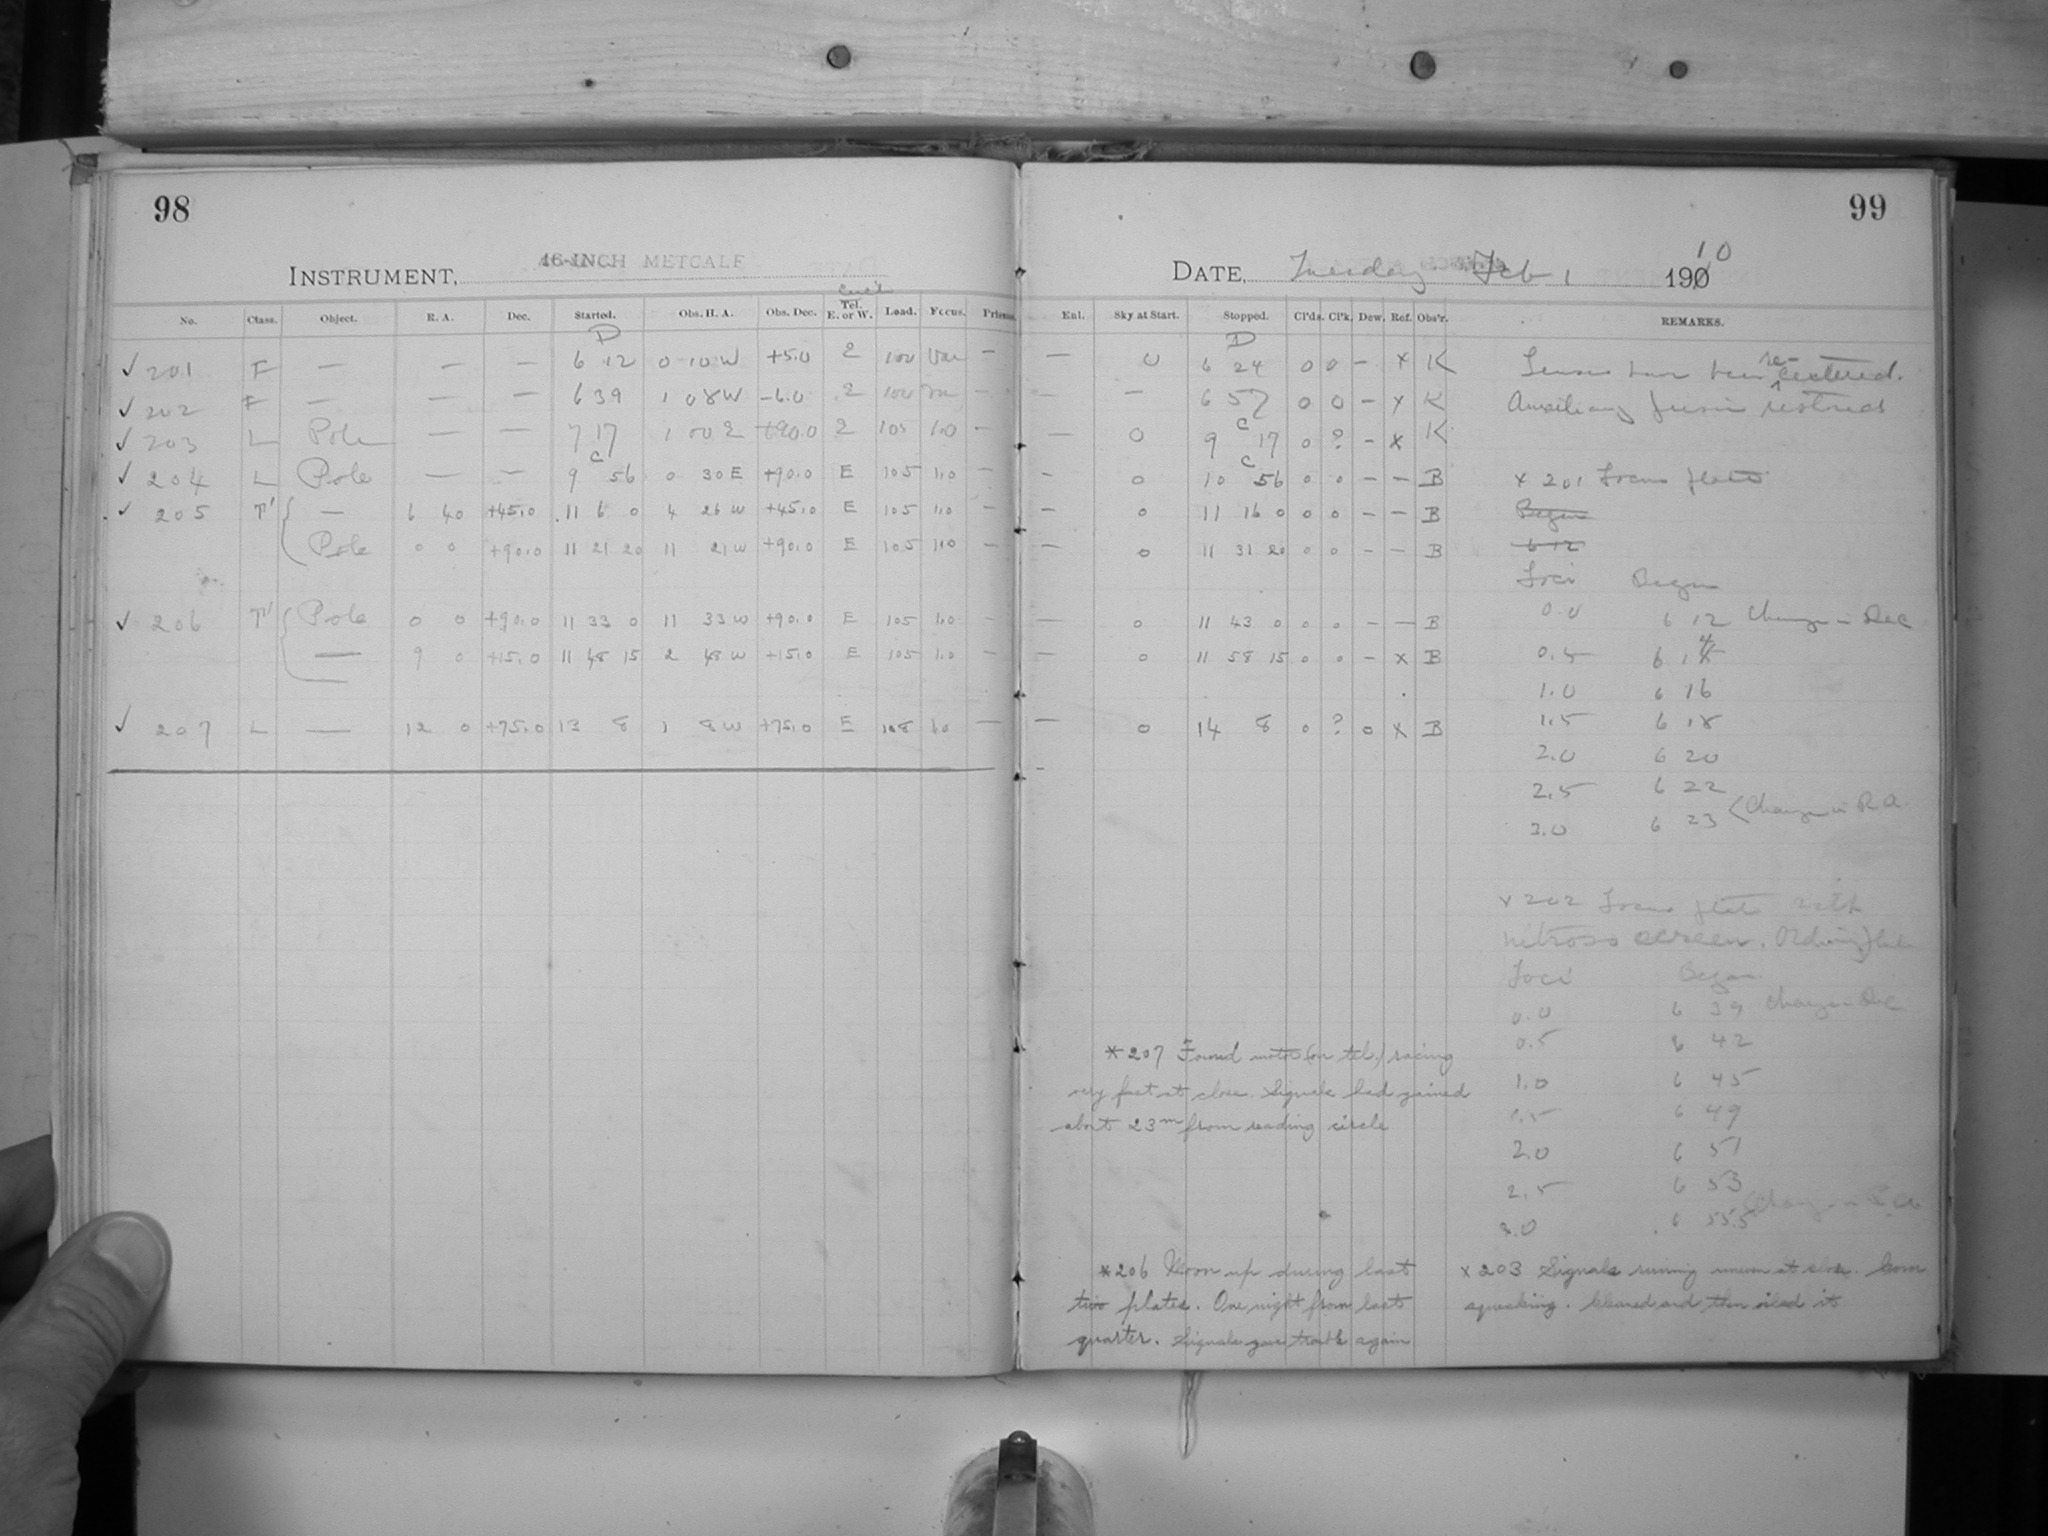 98
INSTRUMENT, 16-INCH METCALF
No. Class. Object. R. A. Dec. Started. Obs. H. A. Obs. Dec. Tel. E. or W. Load. Focus. Prisms.
D
✓ 201 F — — — 6 12 0 10 W +5.0 E 100 Var —
✓ 202 F — — — 6 39 1 08 W -6.0 E 100 —
✓ 203 L Pole — — 7 17 1 00 E +90.0 E 105 1.0 —
C
✓ 204 L Pole — — 9 56 0 30 E +90.0 E 105 1.0 —
✓ 205 T' { — 6 40 +45.0 11 6 0 4 26 W +45.0 E 105 1.0 —
Pole 0 0 +90.0 11 21 20 11 21 W +90.0 E 105 1.0 —
✓ 206 T' { Pole 0 0 +90.0 11 33 0 11 33 W +90.0 E 105 1.0 —
— 9 0 +15.0 11 48 15 2 48 W +15.0 E 105 1.0 —
✓ 207 L — 12 0 +75.0 13 8 1 8 W +75.0 E 108 1.0 —
99
DATE, Tuesday Feb 1 1910
Enl. Sky at Start. Stopped. Cl'ds. Cl'k. Dew. Ref. Obs'r. REMARKS.
D
— 0 6 24 0 0 — x K Lenses have been re-centered.
— — 6 57 0 0 — x K Auxiliary restored
C
— 0 9 17 0 ? — x K
C
— 0 10 56 0 0 — — B x 201 Focus plate
— 0 11 16 0 0 0 — — B Began
— 0 11 31 20 0 0 — — B 6 12
Foci Began
— 0 11 43 0 0 0 — — B 0.0 6 12 Change in Dec
— 0 11 58 15 0 0 — x B 0.5 6 14
1.0 6 16
— 0 14 8 0 ? 0 x B 1.5 6 18
2.0 6 20
2.5 6 22
3.0 6 23 (Change in R.A.
x 202 Focus plate with
nitroso screen. Ordinary plate
Foci Began
0.0 6 39 Change in Dec
0.5 6 42
1.0 6 45
1.5 6 49
2.0 6 51
2.5 6 53
3.0 6 55.5 (Change in R.A.
* 207 Found motor (on tel.) racing
very fast at close. Signals had gained
about 23m from reading circle
* 206 Moon up during last
two plates. One night from last
quarter. Signals gave trouble again
x 203 Signals running uneven at close.
squeaking. Cleaned and then oiled it